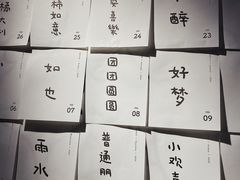 大
利
26
柿
如
意
25
喜
樂
24
醉
23
06
如
也
07
团
团
圆
圆
08
好
梦
09
雨
水
普
通
朋
小
欢
喜